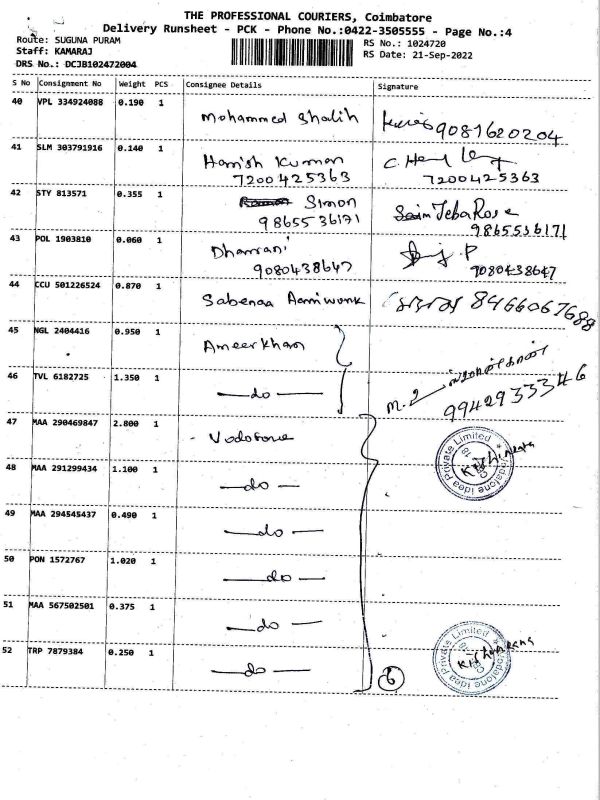 THE PROFESSIONAL COURIERS, Coimbatore
Delivery Runsheet - PCK - Phone No.:0422-3505555 - Page No.:4
Route: SUGUNA PURAM
RS No.: 1024720
Staff: KAMARAJ
RS Date: 21-Sep-2022
DRS No.: DCJB102472004
S No Consignment No Weight PCS Consignee Details Signature
40 VPL 334924088 0.190 1 Mohammed Shalih 9081620204
41 SLM 303791916 0.140 1 Harrish Kumar C.
7200425363 7200425363
42 STY 813571 0.355 1 Simon
9865536171 9865536171
43 POL 1903810 0.060 1 Dharrani P
9080438647 9080438647
44 CCU 501226524 0.870 1 Sabenaa 8466067688
45 NGL 2404416 0.950 1 Ameerkhan
46 TVL 6182725 1.350 1 —do— 9942933346
47 MAA 290469847 2.800 1 Vodofone
Vodafone Idea Private Limited
48 MAA 291299434 1.100 1 —do—
49 MAA 294545437 0.490 1 —do—
50 PON 1572767 1.020 1 —do—
51 MAA 567502501 0.375 1 —do—
52 TRP 7879384 0.250 1 —do— 6
Vodafone Idea Private Limited